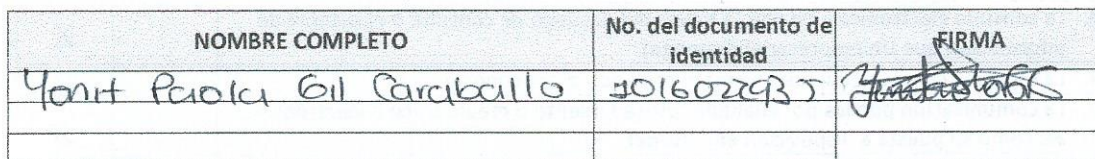 NOMBRE COMPLETO
No. del documento de
identidad
FIRMA
Yonit Paola Gil Caraballo